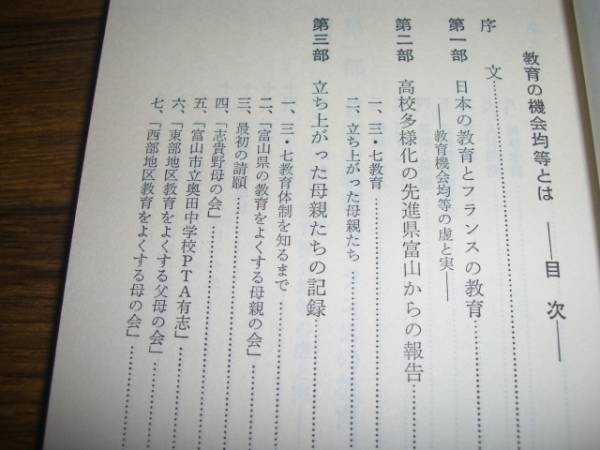 教育の機会均等とは ――目 次――
序 文……………
第一部 日本の教育とフランスの教育
――教育機会均等の虚と実――
第二部 高校多様化の先進県富山からの報告
一、三・七教育……………
二、立ち上がった母親たち……………
第三部 立ち上がった母親たちの記録……………
一、三・七教育体制を知るまで……………
二、「富山県の教育をよくする母親の会」……………
三、最初の請願……………
四、「志貴野母の会」……………
五、「富山市立奥田中学校PTA有志」……………
六、「東部地区教育をよくする父母の会」……………
七、「西部地区教育をよくする母の会」……………